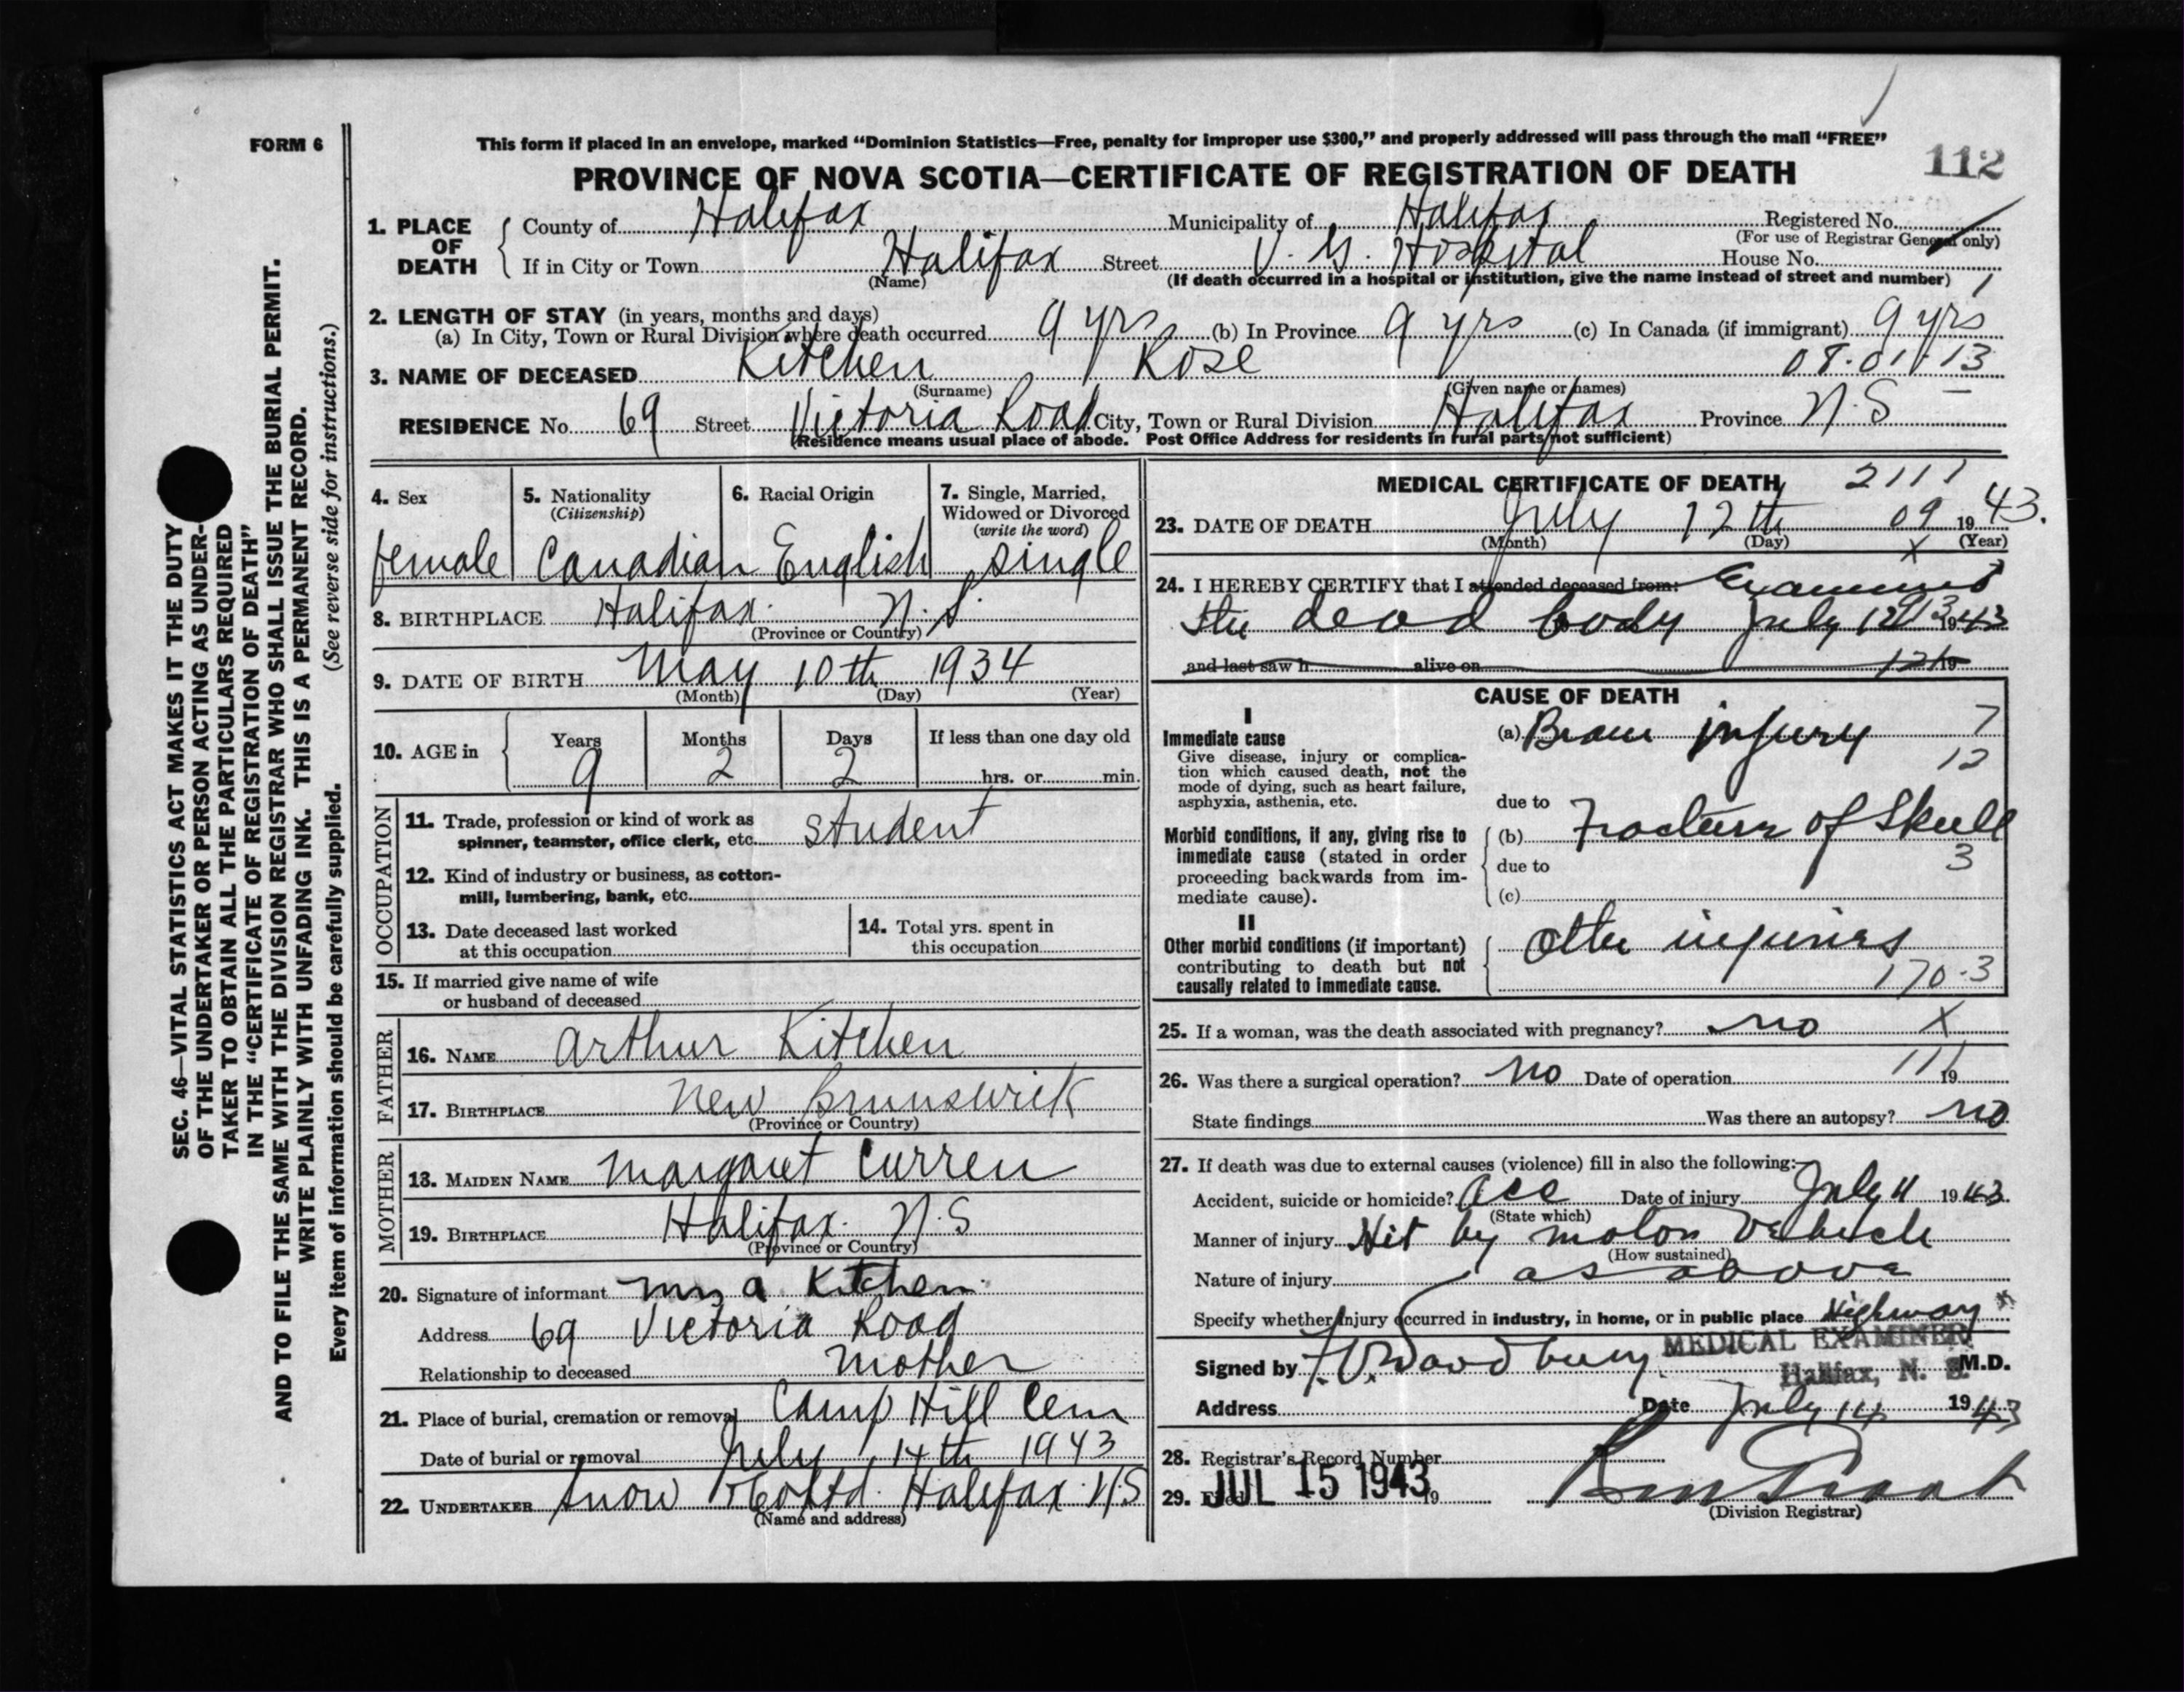 FORM 6
This form if placed in an envelope, marked “Dominion Statistics—Free, penalty for improper use $300,” and properly addressed will pass through the mail “FREE”
112
PROVINCE OF NOVA SCOTIA—CERTIFICATE OF REGISTRATION OF DEATH
1. PLACE OF DEATH
County of Halifax Municipality of Halifax Registered No.
(For use of Registrar General only)
If in City or Town Halifax Street V. G. Hospital House No.
(Name) (If death occurred in a hospital or institution, give the name instead of street and number) 1
2. LENGTH OF STAY (in years, months and days)
(a) In City, Town or Rural Division where death occurred 9 yrs (b) In Province 9 yrs (c) In Canada (if immigrant) 9 yrs
3. NAME OF DECEASED Kitchen, Rose 08.01.13
(Surname) (Given name or names)
RESIDENCE No. 69 Street Victoria Road City, Town or Rural Division Halifax Province N.S
(Residence means usual place of abode. Post Office Address for residents in rural parts not sufficient)
4. Sex 5. Nationality 6. Racial Origin 7. Single, Married,
(Citizenship) Widowed or Divorced
(write the word)
female Canadian English single
8. BIRTHPLACE Halifax. N.S.
(Province or Country)
9. DATE OF BIRTH May 10th 1934
(Month) (Day) (Year)
10. AGE in Years Months Days If less than one day old
9 2 2 hrs. or min.
OCCUPATION
11. Trade, profession or kind of work as
spinner, teamster, office clerk, etc. student
12. Kind of industry or business, as cotton-
mill, lumbering, bank, etc.
13. Date deceased last worked 14. Total yrs. spent in
at this occupation this occupation
15. If married give name of wife
or husband of deceased
FATHER
16. NAME Arthur Kitchen
17. BIRTHPLACE New Brunswick
(Province or Country)
MOTHER
18. MAIDEN NAME Margaret Curren
19. BIRTHPLACE Halifax. N.S
(Province or Country)
20. Signature of informant Mrs A Kitchen
Address 69 Victoria Road
Relationship to deceased Mother
21. Place of burial, cremation or removal Camp Hill Cem
Date of burial or removal July 14th 1943
22. UNDERTAKER Snow & Co Ltd. Halifax. N.S
(Name and address)
MEDICAL CERTIFICATE OF DEATH 2111
23. DATE OF DEATH July 12th 09 1943.
(Month) (Day) (Year)
X
24. I HEREBY CERTIFY that I attended deceased from: Examined
the dead body July 12 1943
and last saw h alive on 19
CAUSE OF DEATH
I
Immediate cause
Give disease, injury or complica-
tion which caused death, not the
mode of dying, such as heart failure,
asphyxia, asthenia, etc.
(a) Brain injury 7
12
due to
Morbid conditions, if any, giving rise to
immediate cause (stated in order
proceeding backwards from im-
mediate cause).
(b) Fracture of Skull
due to 3
(c)
II
Other morbid conditions (if important)
contributing to death but not
causally related to immediate cause.
Other injuries
170-3
25. If a woman, was the death associated with pregnancy? no X
26. Was there a surgical operation? No Date of operation 19
State findings Was there an autopsy? no
27. If death was due to external causes (violence) fill in also the following:
Accident, suicide or homicide? Acc Date of injury July 11 1943.
(State which)
Manner of injury Hit by motor vehicle
(How sustained)
Nature of injury as above
Specify whether injury occurred in industry, in home, or in public place Highway
MEDICAL EXAMINER
Signed by Woodbury M.D.
Halifax, N. S.
Address Date July 14 1943
28. Registrar's Record Number
29. JUL 15 1943 19
(Division Registrar)
SEC. 46—VITAL STATISTICS ACT MAKES IT THE DUTY
OF THE UNDERTAKER OR PERSON ACTING AS UNDER-
TAKER TO OBTAIN ALL THE PARTICULARS REQUIRED
IN THE “CERTIFICATE OF REGISTRATION OF DEATH”
AND TO FILE THE SAME WITH THE DIVISION REGISTRAR WHO SHALL ISSUE THE BURIAL PERMIT.
WRITE PLAINLY WITH UNFADING INK. THIS IS A PERMANENT RECORD.
Every item of information should be carefully supplied. (See reverse side for instructions.)